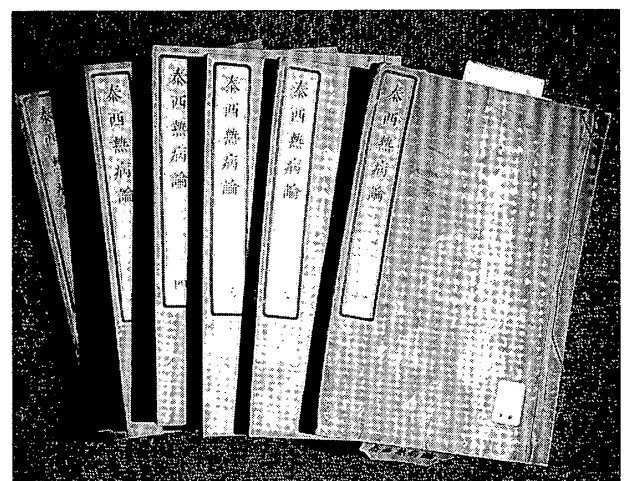 泰西熱病論
泰西熱病論
泰西熱病論
泰西熱病論 四
泰西熱病論
泰西